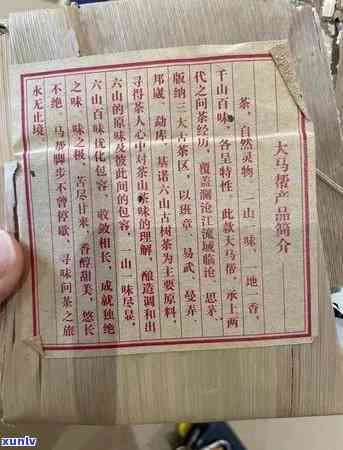 大马帮产品简介
茶，自然灵物，一山一味，一地一香，
千山百味，各呈特性。此款大马帮，承上两
代之问茶经历，覆盖澜沧江流域临沧、思茅、
版纳三大古茶区，以班章、易武、曼弄、
邦崴、勐库、基诺六山古树茶为主要原料，
寻得茶人心中对茶山茶味的理解，酿造调和出
六山的原味及彼此间的包容，一山一味尽显，
六山百味优化包容，收敛相长，成就独绝
之味，味之极，苦尽甘来，香醇甜美，悠长
不绝。马帮脚步不曾停歇，寻味问茶之旅
永无止境